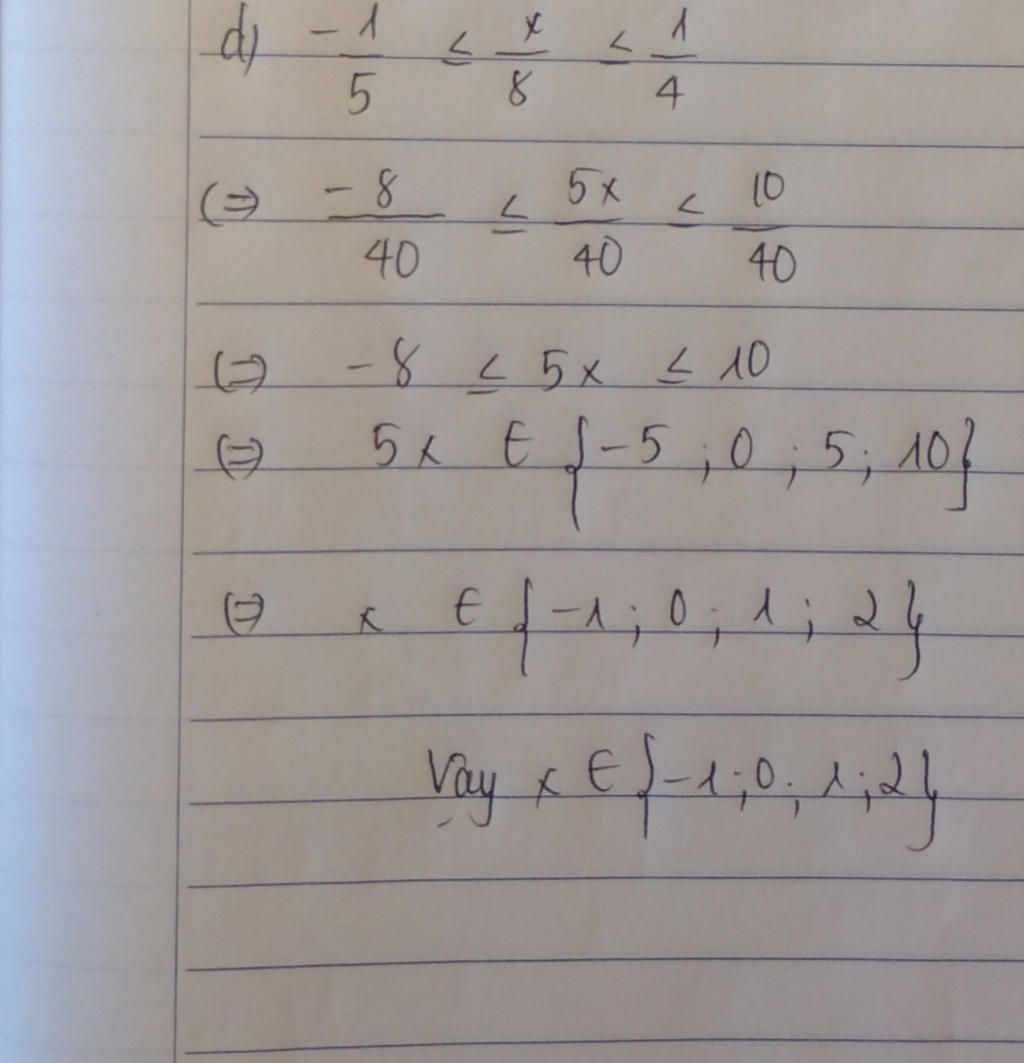 d) -1/5 ≤ x/8 ≤ 1/4
(=) -8/40 ≤ 5x/40 ≤ 10/40
(=) -8 ≤ 5x ≤ 10
(=) 5x ∈ {-5 ; 0 ; 5 ; 10}
(=) x ∈ {-1 ; 0 ; 1 ; 2}
Vậy x ∈ {-1 ; 0 ; 1 ; 2}